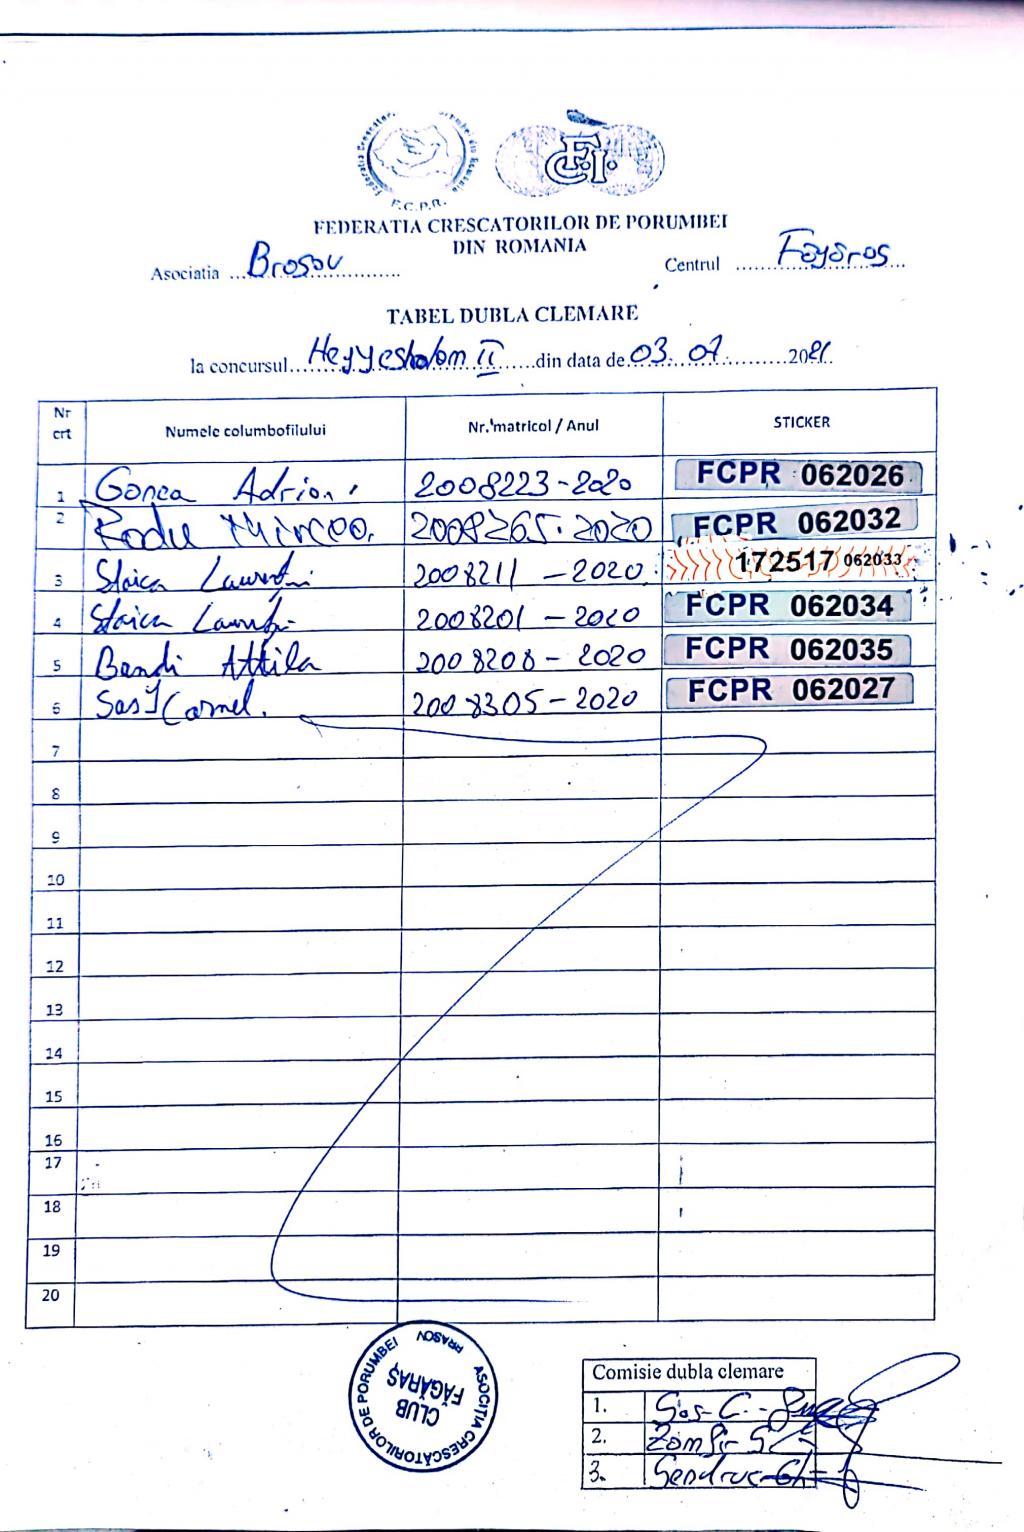 F.C.P.R.
FEDERATIA CRESCATORILOR DE PORUMBEI
DIN ROMANIA
Asociatia Brosov Centrul Foyoros
TABEL DUBLA CLEMARE
la concursul Heyyeshalom II din data de 03. 07 2021
Nr crt Numele columbofilului Nr. matricol / Anul STICKER
1 Gonea Adrian 2008223-2020 FCPR 062026
2 Radu Mircea. 2008265.2020 FCPR 062032
3 Staica 2008211 - 2020 172517 062033
4 Staica 2008201 - 2020 FCPR 062034
5 Bendi Attila 2008208 - 2020 FCPR 062035
6 Sas Cornel. 2008305-2020 FCPR 062027
7
8
9
10
11
12
13
14
15
16
17
18
19
20
ASOCITIA CRESCĂTORILOR DE PORUMBEI
BRASOV
CLUB
FĂGĂRAȘ
Comisie dubla clemare
1. Sas C.
2. Zamfir S
3. Sendruc Gh